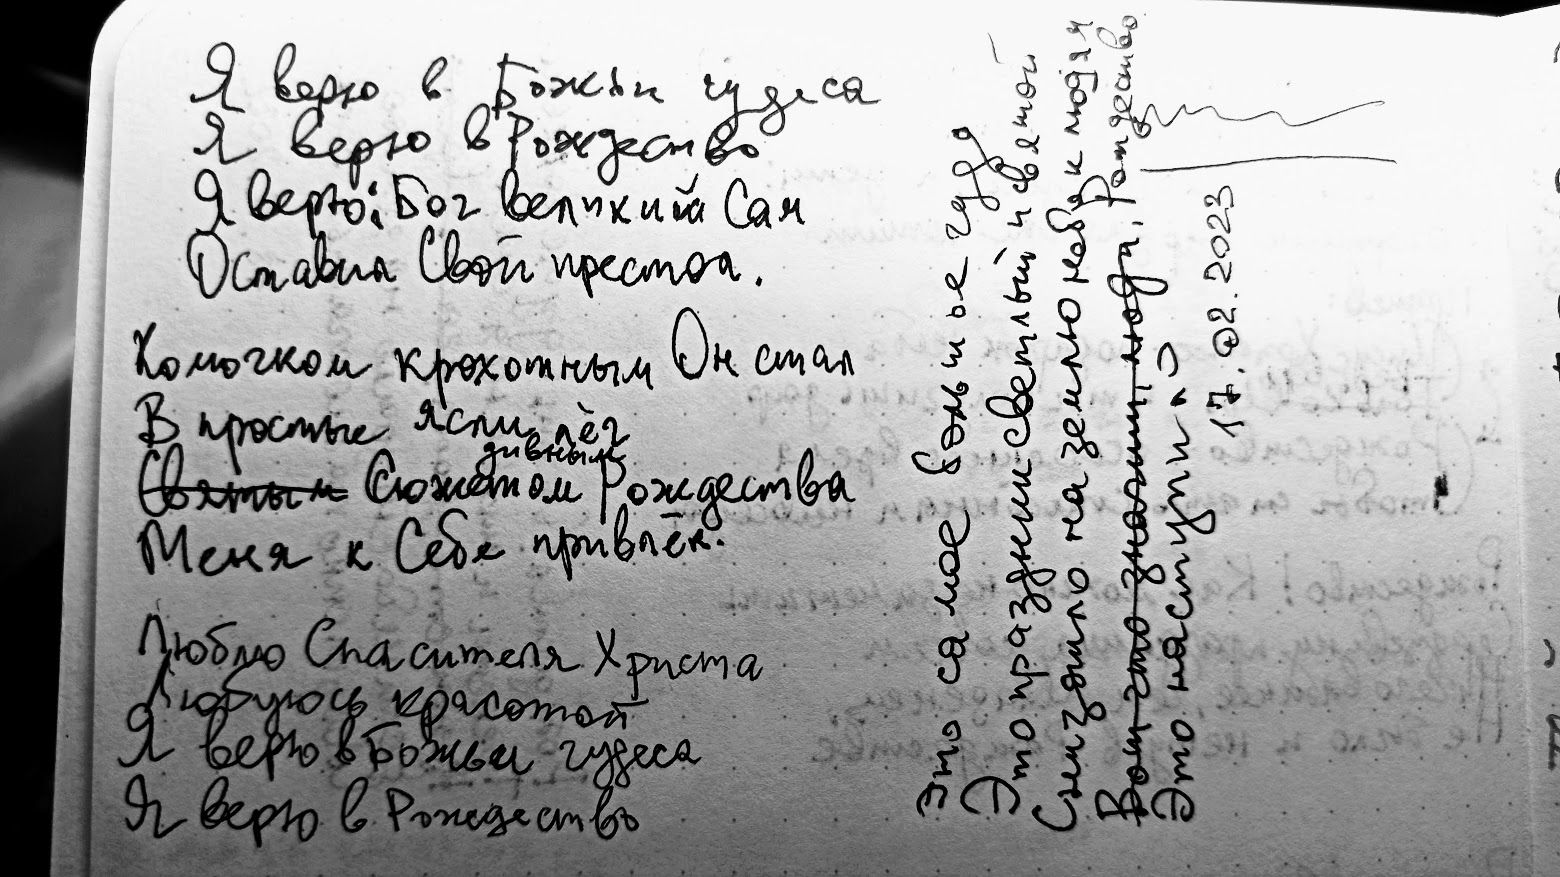 Я верю в Божьи чудеса
Я верю в Рождество
Я верю: Бог великий Сам
Оставил Свой престол.
Комочком крохотным Он стал
В простые ясли лёг
дивным
Святым Сюжетом Рождества
Меня к Себе привлёк.
Люблю Спасителя Христа
Любуюсь красотой
Я верю в Божьи чудеса
Я верю в Рождество
Это самое большое чудо
Это праздник светлый и святой
Снизошло на землю небо к людям
Вот что значит, люди, Рождество
Это наступил
17.02.2023